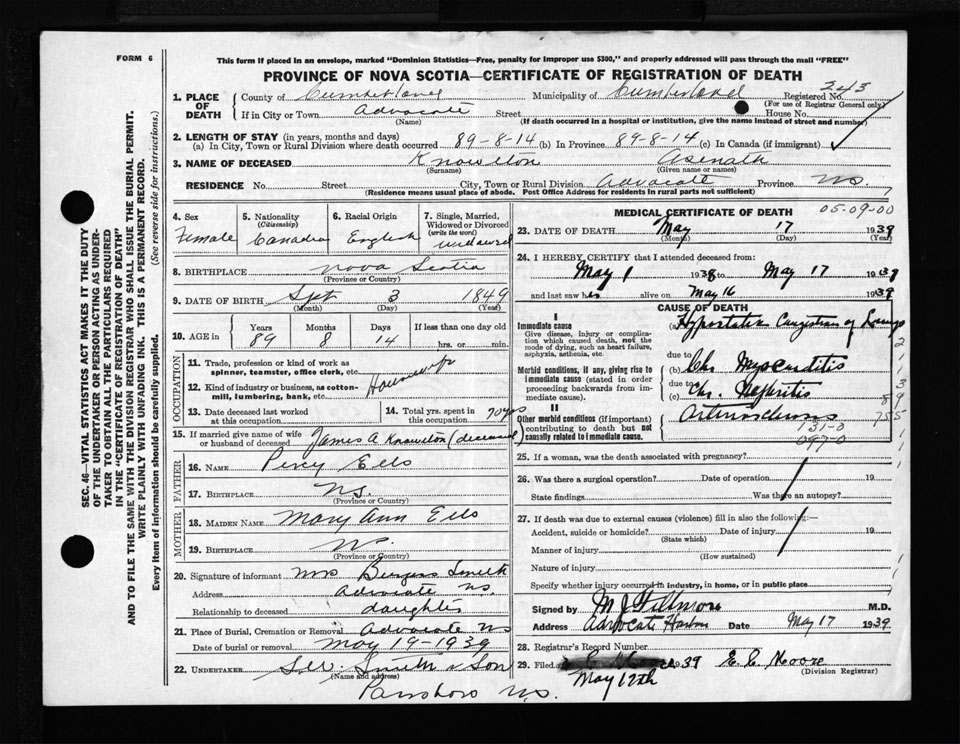 FORM 6
This form if placed in an envelope, marked "Dominion Statistics—Free, penalty for improper use $300," and properly addressed will pass through the mail "FREE"
PROVINCE OF NOVA SCOTIA—CERTIFICATE OF REGISTRATION OF DEATH
243
1. PLACE OF DEATH County of Cumberland Municipality of Cumberland Registered No.
(For use of Registrar General only)
If in City or Town Advocate Street House No.
(Name) (If death occurred in a hospital or institution, give the name instead of street and number)
2. LENGTH OF STAY (in years, months and days)
(a) In City, Town or Rural Division where death occurred 89-8-14 (b) In Province 89-8-14 (c) In Canada (if immigrant)
3. NAME OF DECEASED Knowlton Asenath
(Surname) (Given name or names)
RESIDENCE No. Street City, Town or Rural Division Advocate Province N.S.
(Residence means usual place of abode. Post Office Address for residents in rural parts not sufficient)
4. Sex Female
5. Nationality (Citizenship) Canadian
6. Racial Origin English
7. Single, Married, Widowed or Divorced (write the word) widowed
8. BIRTHPLACE Nova Scotia
(Province or Country)
9. DATE OF BIRTH Sept 3 1849
(Month) (Day) (Year)
10. AGE in Years Months Days If less than one day old
89 8 14 hrs. or min.
OCCUPATION
11. Trade, profession or kind of work as spinner, teamster, office clerk, etc. Housewife
12. Kind of industry or business, as cotton-mill, lumbering, bank, etc.
13. Date deceased last worked at this occupation
14. Total yrs. spent in this occupation 70 yrs
15. If married give name of wife or husband of deceased James A Knowlton (deceased)
FATHER
16. NAME Percy Eels
17. BIRTHPLACE N.S.
(Province or Country)
MOTHER
18. MAIDEN NAME Mary Ann Eels
19. BIRTHPLACE N.S.
(Province or Country)
20. Signature of informant Mrs Smith
Address Advocate N.S.
Relationship to deceased daughter
21. Place of Burial, Cremation or Removal Advocate N.S
Date of burial or removal May 19-1939
22. UNDERTAKER Smith & Son
(Name and address)
Parrsboro N.S.
MEDICAL CERTIFICATE OF DEATH
05-09-00
23. DATE OF DEATH May 17 1939
(Month) (Day) (Year)
24. I HEREBY CERTIFY that I attended deceased from:
May 1 1938 to May 17 1939
and last saw her alive on May 16 1939
CAUSE OF DEATH
I
Immediate cause
Give disease, injury or complication which caused death, not the mode of dying, such as heart failure, asphyxia, asthenia, etc.
(a) Hypostatic Congestion of Lungs
due to
Morbid conditions, if any, giving rise to immediate cause (stated in order proceeding backwards from immediate cause).
(b) Chr. Myocarditis
due to
(c) Chr. Nephritis
II
Other morbid conditions (if important) contributing to death but not causally related to immediate cause.
Arteriosclerosis
131-0
097-0
25. If a woman, was the death associated with pregnancy?
26. Was there a surgical operation? Date of operation 19
State findings Was there an autopsy?
27. If death was due to external causes (violence) fill in also the following:—
Accident, suicide or homicide? Date of injury 19
(State which)
Manner of injury
(How sustained)
Nature of injury
Specify whether injury occurred in industry, in home, or in public place
Signed by M J Fillmore M.D.
Address Advocate Harbor Date May 17 1939
28. Registrar's Record Number
29. Filed 1939 E. C. Moore
May 17th (Division Registrar)
SEC. 46—VITAL STATISTICS ACT MAKES IT THE DUTY
OF THE UNDERTAKER OR PERSON ACTING AS UNDER-
TAKER TO OBTAIN ALL THE PARTICULARS REQUIRED
IN THE "CERTIFICATE OF REGISTRATION OF DEATH"
AND TO FILE THE SAME WITH THE DIVISION REGISTRAR WHO SHALL ISSUE THE BURIAL PERMIT.
WRITE PLAINLY WITH UNFADING INK. THIS IS A PERMANENT RECORD.
Every item of information should be carefully supplied. (See reverse side for instructions.)